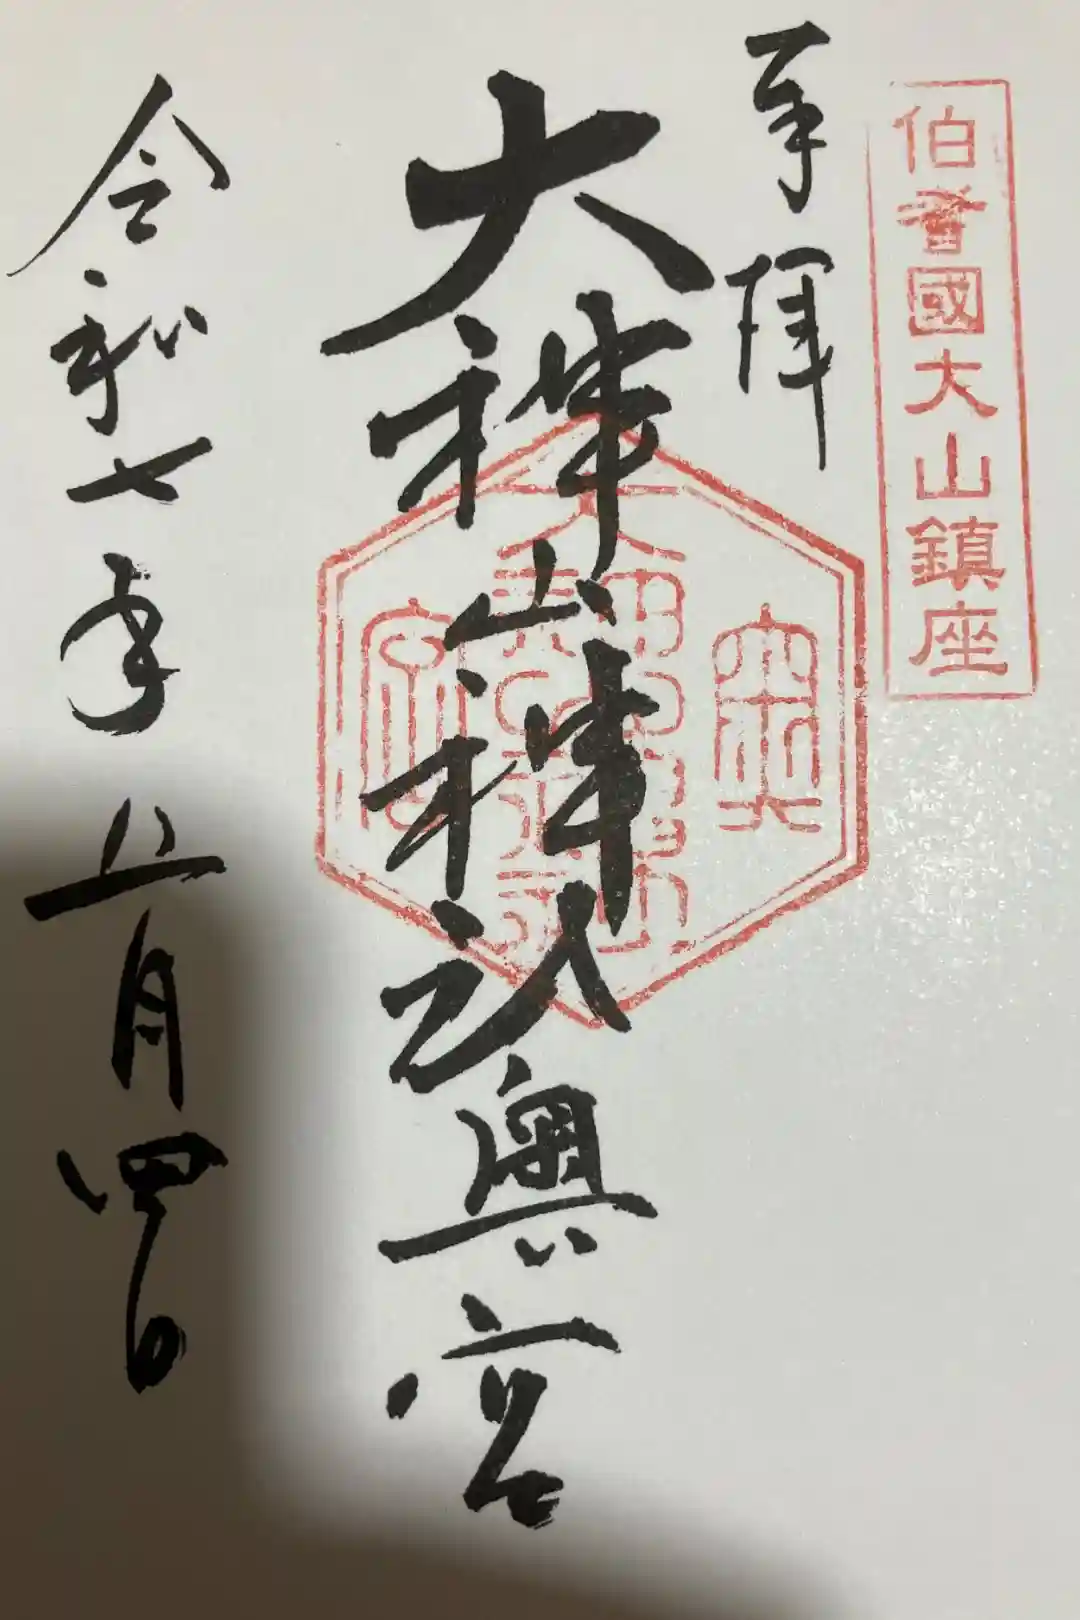 伯耆國大山鎮座
奉拝
大神山神社奥宮
奥
宮
令和七年 月四日